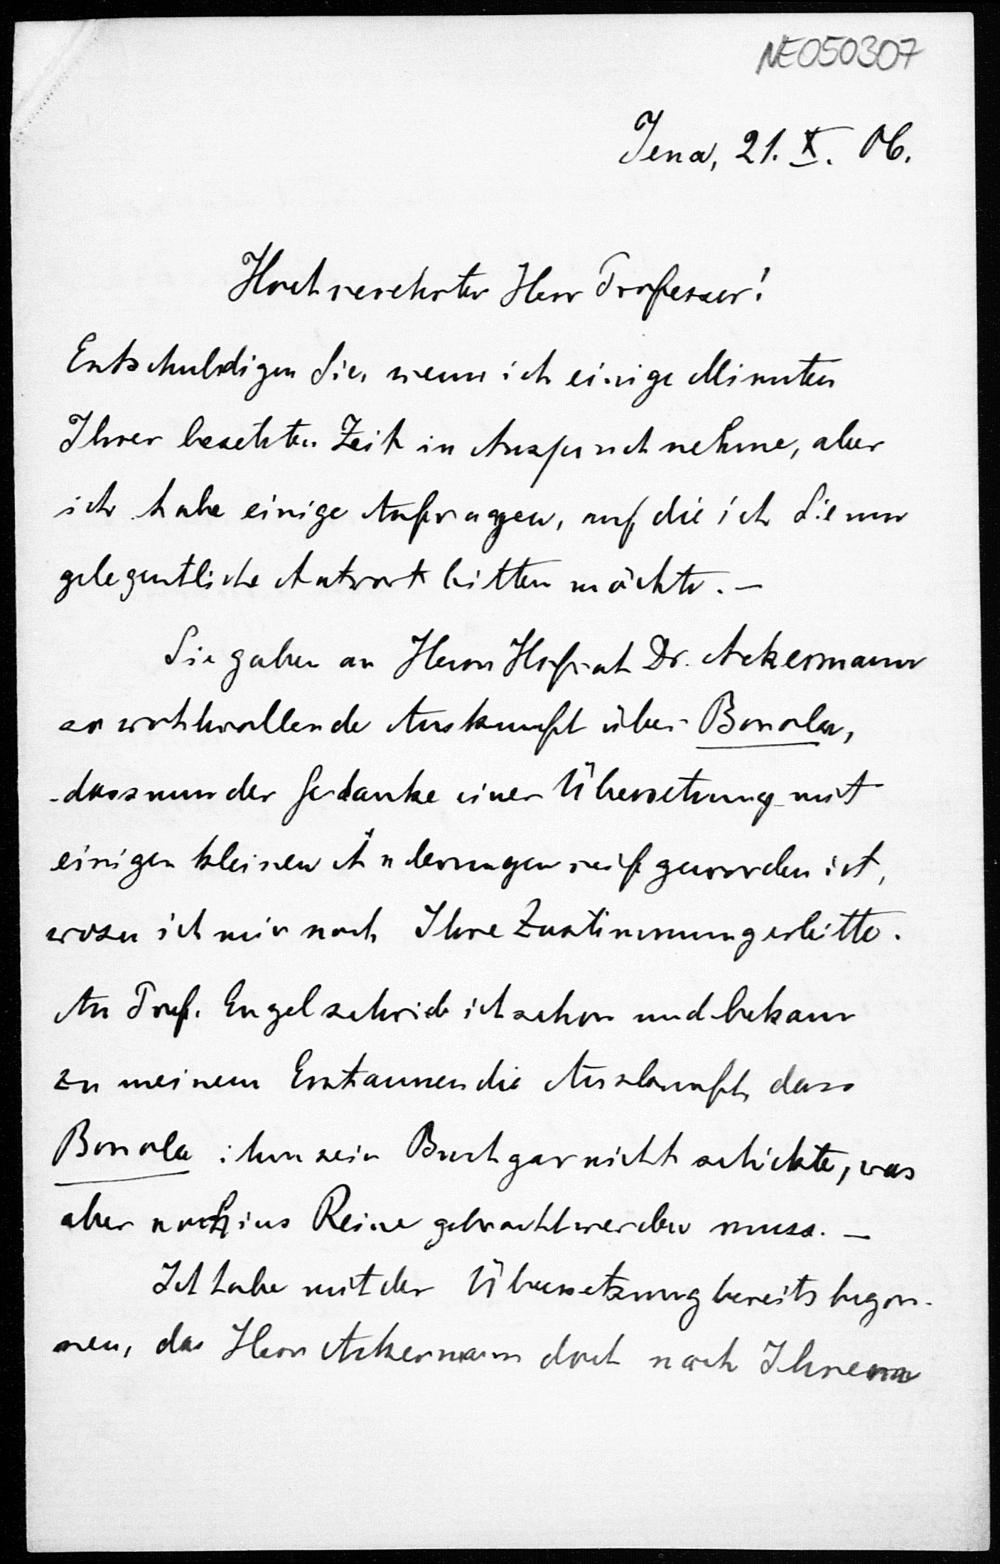 NE050307
Jena, 21. X. 06.
Hochverehrter Herr Professor!
Entschuldigen Sie, wenn ich einige Minuten
Ihrer besetzten Zeit in Anspruch nehme, aber
ich habe einige Anfragen, auf die ich Sie um
gelegentliche Antwort bitten möchte. —
Sie gaben an Herrn Hofrat Dr. Ackermann
so wohlwollende Auskunft über Bonola,
dass nun der Gedanke einer Übersetzung mit
einigen kleinen Änderungen reif geworden ist,
wozu ich mir noch Ihre Zustimmung erbitte.
An Prof. Engel schrieb ich schon und bekam
zu meinem Erstaunen die Auskunft, dass
Bonola ihm sein Buch gar nicht schickte, was
aber noch ins Reine gebracht werden muss. —
Ich habe mit der Übersetzung bereits begon-
nen, da Herr Ackermann doch nach Ihrem